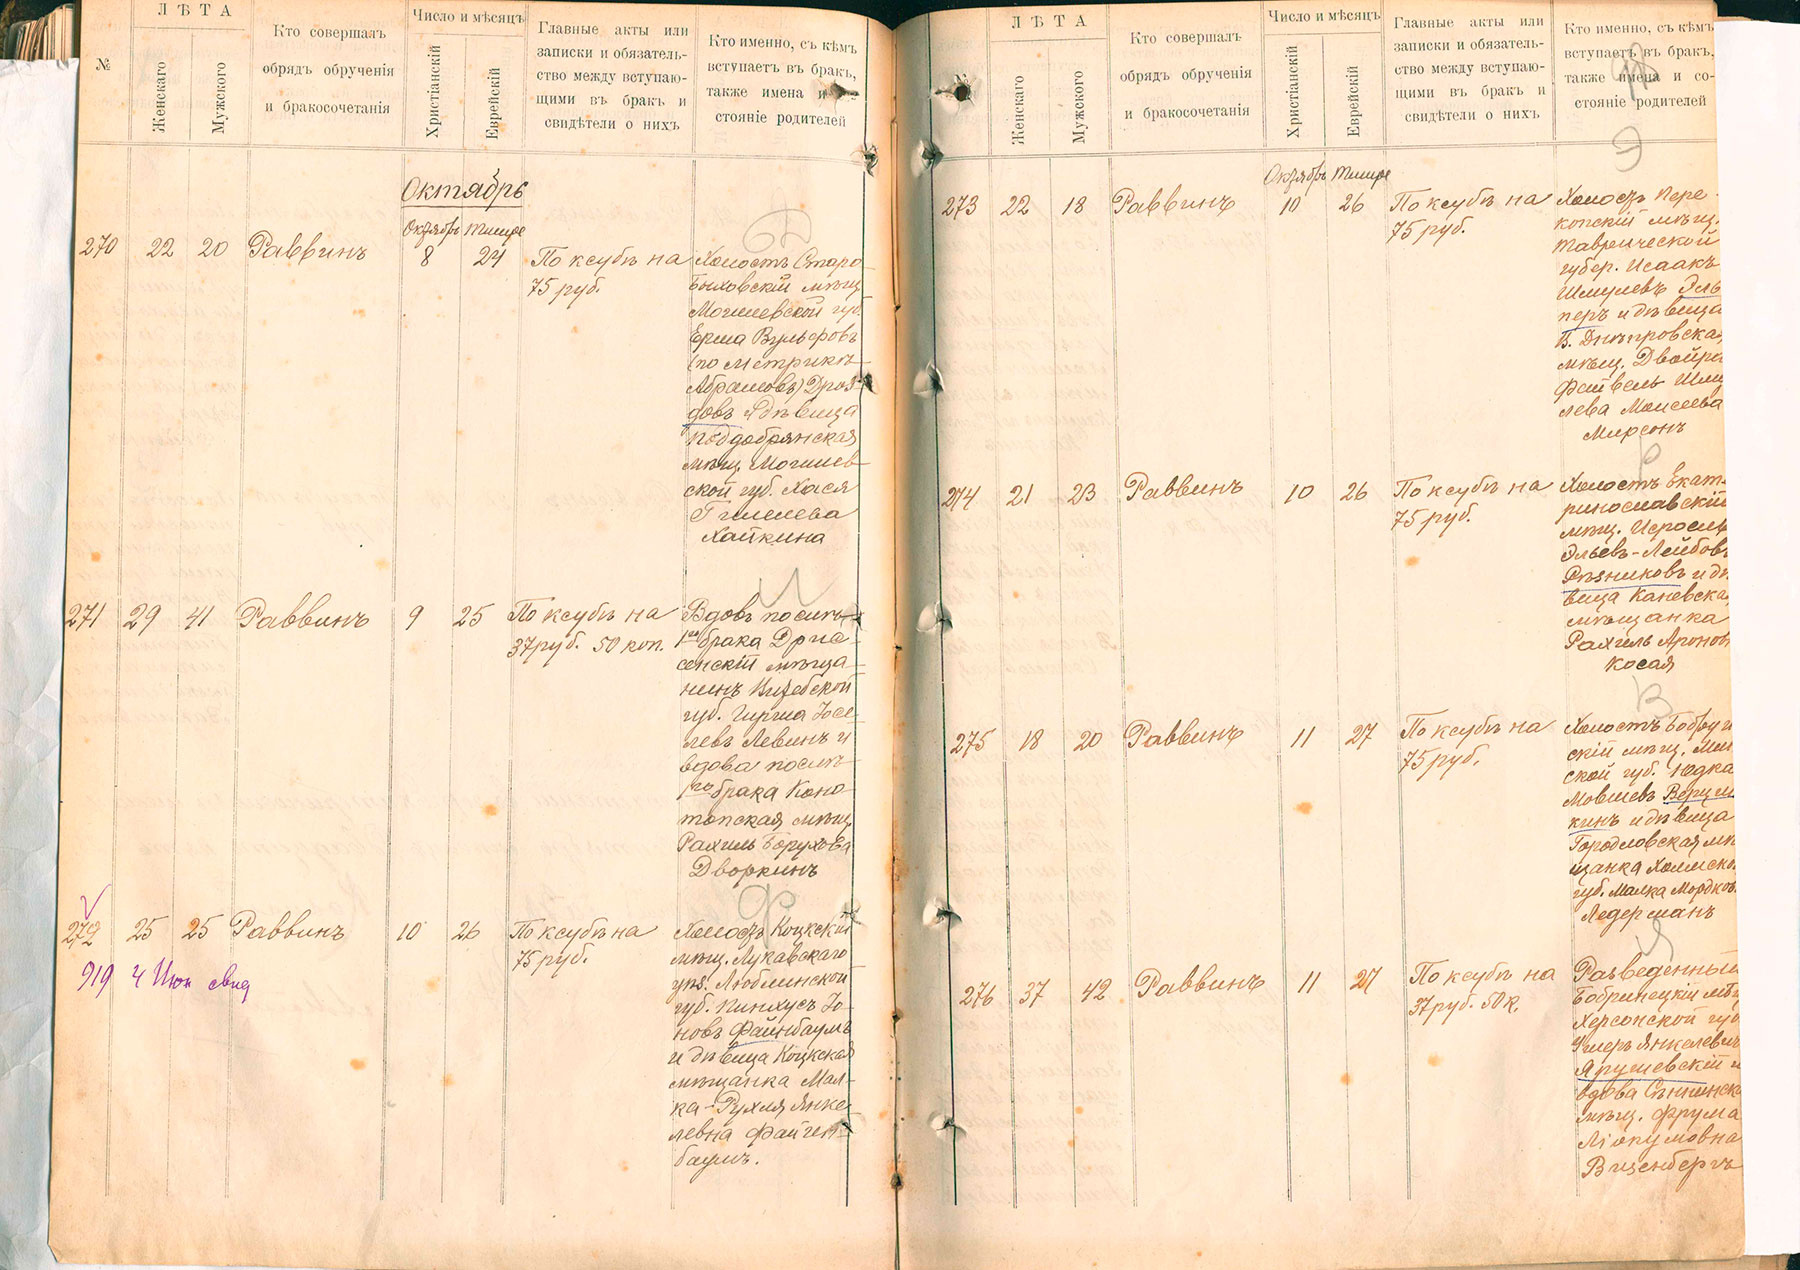 №
ЛѢТА
Женскаго
Мужского
Кто совершалъ
обрядъ обрученія
и бракосочетанія
Число и мѣсяцъ
Христіанскій
Еврейскій
Главные акты или
записки и обязатель-
ство между вступаю-
щими въ бракъ и
свидѣтели о нихъ
Кто именно, съ кѣмъ
вступаетъ въ бракъ,
также имена и
стояніе родителей
Октябрь
Октябрь Тишре
270 22 20 Раввинъ 8 24 По ксубѣ на
75 руб.
Холостъ Старо
Быховскій мѣщ.
Могилевской губ.
Ерма Вульфовъ
(по метрикѣ
Абрамовъ) Дроз-
довъ и дѣвица
Поддобрянская
мѣщ. Могилев-
ской губ. Хася
Гилелева
Хайкина
И
271 29 41 Раввинъ 9 25 По ксубѣ на
37 руб. 50 коп.
Вдовъ послѣ
1го брака Дрис-
сенскій мѣща-
нинъ Витебской
губ. Гирша Іосе-
левъ Левинъ и
вдова послѣ
1го брака Коно-
топская мѣщ.
Рахиль Борухова
Дворкинъ
Ф
272 25 25 Раввинъ 10 26 По ксубѣ на
75 руб.
919 4 Июн свид
Холостъ Коцкскій
мѣщ. Лукавскаго
уѣз. Люблинской
губ. Пинхусъ Іо-
новъ Файнбаумъ
и дѣвица Коцкская
мѣщанка Мал-
ка-Рухля Янке-
левна Файген-
баумъ.
ЛѢТА
Женскаго
Мужского
Кто совершалъ
обрядъ обрученія
и бракосочетанія
Число и мѣсяцъ
Христіанскій
Еврейскій
Главные акты или
записки и обязатель-
ство между вступаю-
щими въ бракъ и
свидѣтели о нихъ
Кто именно, съ кѣмъ
вступаетъ въ бракъ,
также имена и со-
стояніе родителей
Э
Октябрь Тишре
273 22 18 Раввинъ 10 26 По ксубѣ на
75 руб.
Холостъ Пере-
копскій мѣщ.
Таврической
губер. Исаакъ
Шмулевъ Эль
перъ и дѣвица
Днѣпровская
мѣщ. Двойра
Файвель Шму
лева Моисеева
Мирсонъ
Р
274 21 23 Раввинъ 10 26 По ксубѣ на
75 руб.
Холостъ Екате-
ринославскій
мѣщ. Исроель
Эльевъ-Лейбовъ
Рѣзниковъ и дѣ
вица Каневская
мѣщанка
Рахиль Аронов
Косая
В
275 18 20 Раввинъ 11 27 По ксубѣ на
75 руб.
Холостъ Бобруй
скій мѣщ. Мин
ской губ. Юдка
Мовшевъ Верцм
кинъ и дѣвица
Городловская мѣ
щанка Холмской
губ. Малка Мордков.
Ледерманъ
Я
276 37 42 Раввинъ 11 27 По ксубѣ на
37 руб. 50 к.
Разведенный
Бобринецкій мѣщ
Херсонской губ
Ушеръ Янкелевичъ
Ярушевскій и
вдова Сѣнненска
мѣщ. Фрума
Вищенбергъ